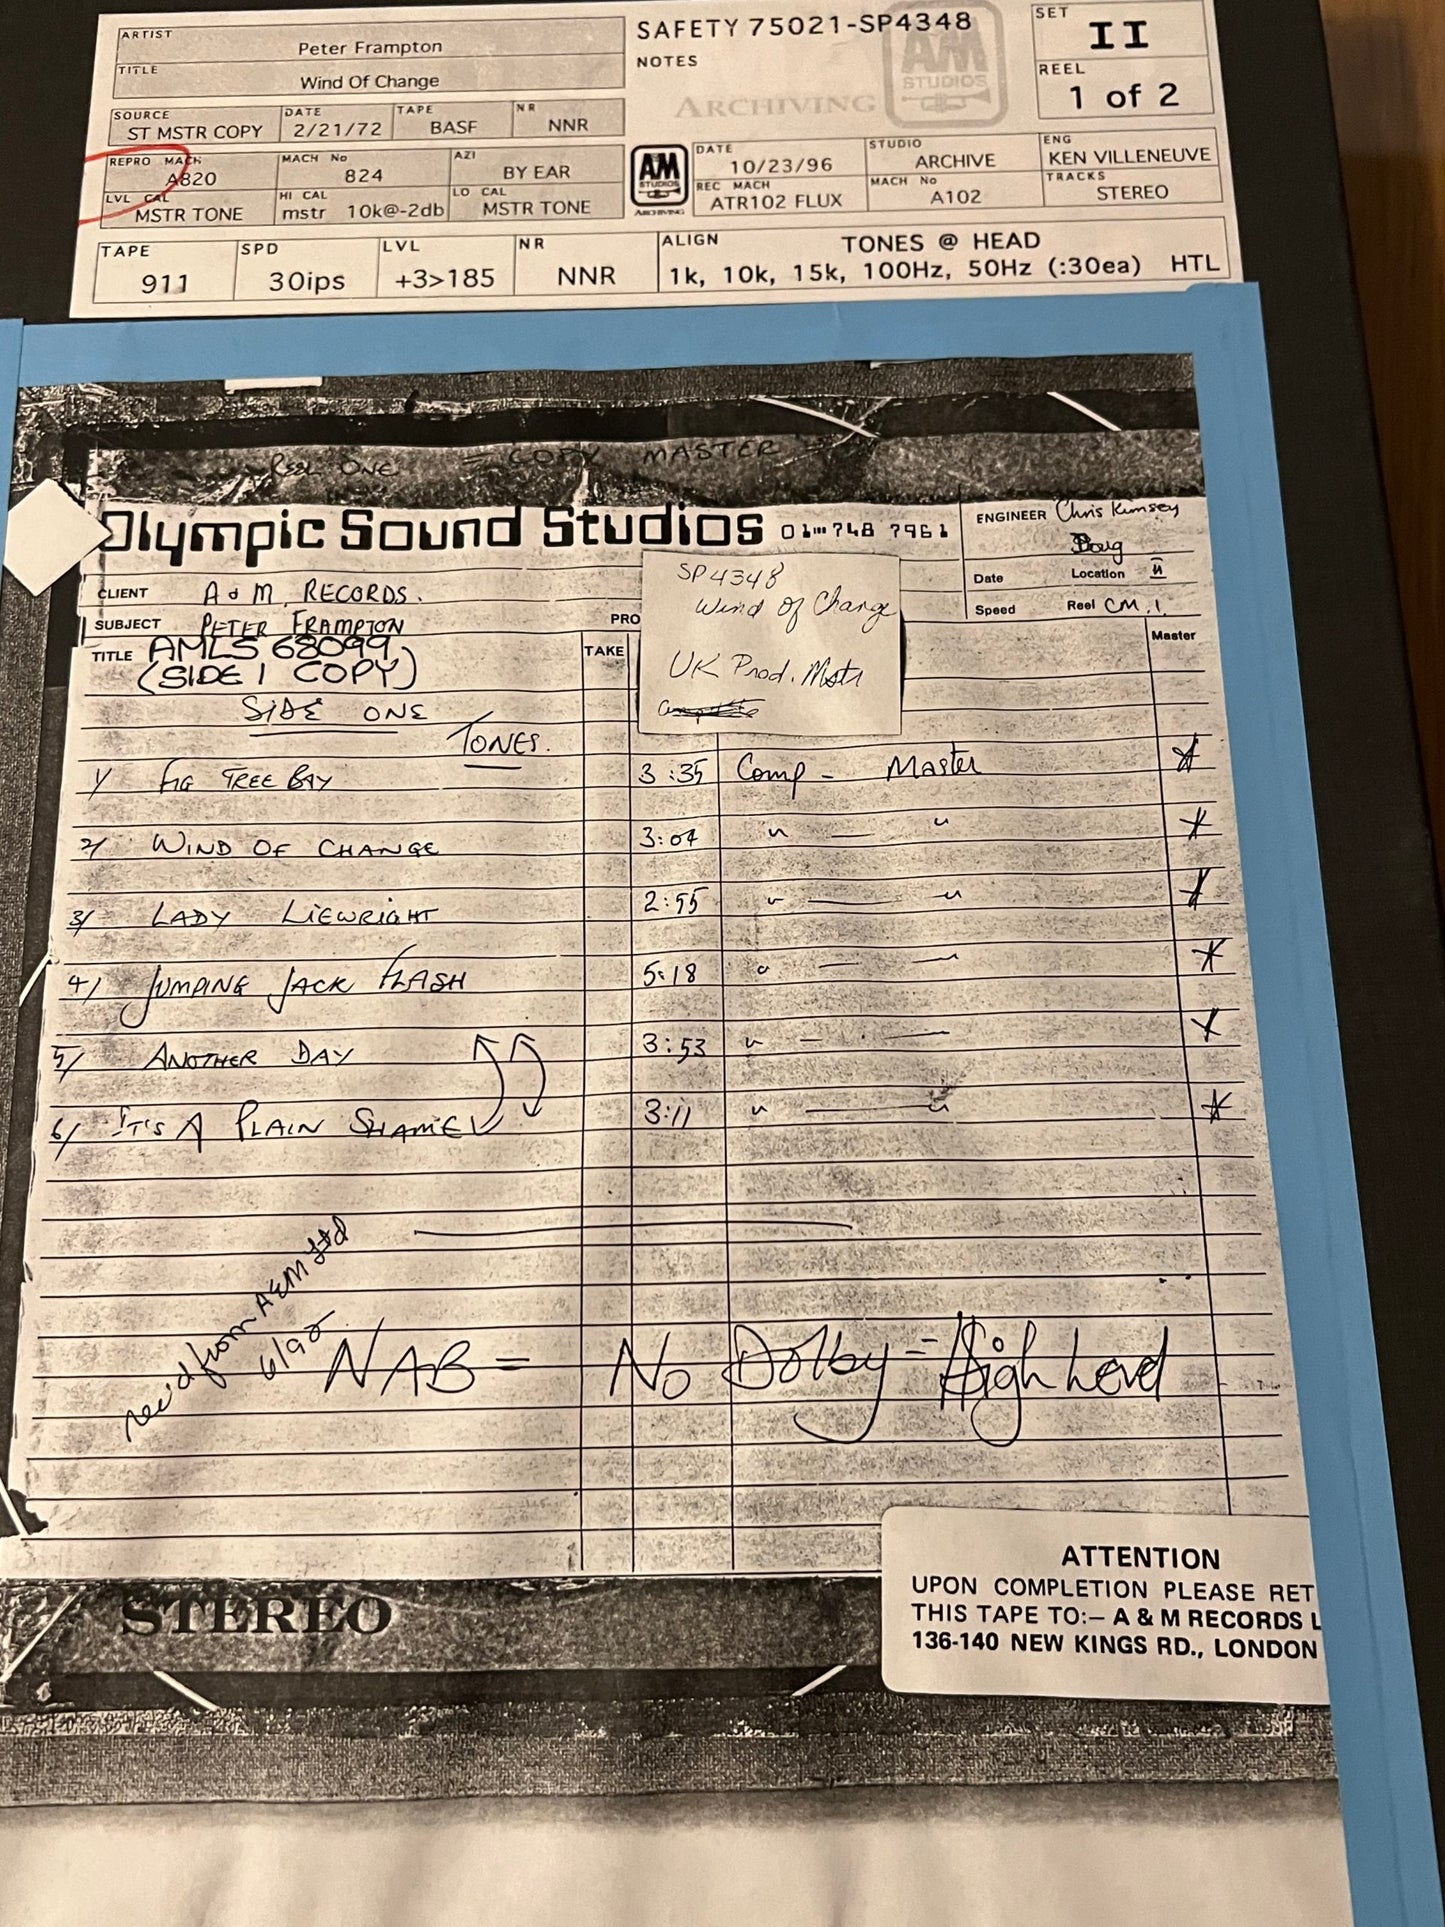 ARTIST
Peter Frampton
TITLE
Wind Of Change
SOURCE
ST MSTR COPY
DATE
2/21/72
TAPE
BASF
NR
NNR
REPRO MACH
A820
MACH No
824
AZI
BY EAR
LVL CAL
MSTR TONE
HI CAL
mstr 10k@-2db
LO CAL
MSTR TONE
SAFETY 75021-SP4348
NOTES
A&M
STUDIOS
ARCHIVING
SET
II
REEL
1 of 2
A&M
STUDIOS
ARCHIVING
DATE
10/23/96
STUDIO
ARCHIVE
ENG
KEN VILLENEUVE
REC MACH
ATR102 FLUX
MACH No
A102
TRACKS
STEREO
TAPE
911
SPD
30ips
LVL
+3>185
NR
NNR
ALIGN
TONES @ HEAD
1k, 10k, 15k, 100Hz, 50Hz (:30ea) HTL
REEL ONE = COPY MASTER
Olympic Sound Studios 01 748 7961
ENGINEER Chris Kimsey
Doug
CLIENT A & M. RECORDS.
Date
Location
SUBJECT PETER FRAMPTON
PRO
Speed
Reel CM.1.
TITLE AMLS 68099
(SIDE 1 COPY)
TAKE
Master
SP4348
Wind Of Change
UK Prod. Mstr
SIDE ONE
TONES.
1/ FIG TREE BAY 3:35 Comp - Master *
2/ WIND OF CHANGE 3:04 " — " *
3/ LADY LIEWRIGHT 2:55 " — " *
4/ JUMPING JACK FLASH 5:18 " — — *
5/ ANOTHER DAY 3:53 " — — *
6/ IT'S A PLAIN SHAME 3:11 " — " *
rec'd from A&M Ltd
6/90
NAB = No Dolby = High Level
STEREO
ATTENTION
UPON COMPLETION PLEASE RET
THIS TAPE TO:– A & M RECORDS L
136-140 NEW KINGS RD., LONDON